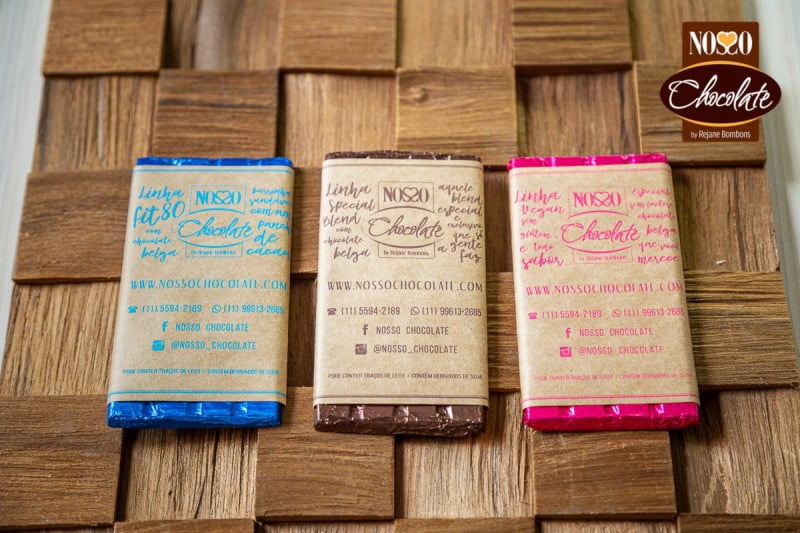 NOSSO
Chocolate
by Rejane Bombons
Linha
fit80
com
chocolate
belga
NOSSO
Chocolate
by Rejane Bombons
barrinha
com um
de
cacau
WWW.NOSSOCHOCOLATE.COM
(11) 5594-2189 (11) 99613-2685
NOSSO CHOCOLATE
@NOSSO_CHOCOLATE
PODE CONTER TRAÇOS DE LEITE / CONTÉM DERIVADOS DE SOJA
Linha
Special
Blend
com
chocolate
belga
NOSSO
Chocolate
by Rejane Bombons
aquele
blend
especial
e
exclusivo
que só
a gente
faz
WWW.NOSSOCHOCOLATE.COM
(11) 5594-2189 (11) 99613-2685
NOSSO CHOCOLATE
@NOSSO_CHOCOLATE
PODE CONTER TRAÇOS DE LEITE / CONTÉM DERIVADOS DE SOJA
Linha
Vegan
sem
glúten
e todo
sabor
NOSSO
Chocolate
by Rejane Bombons
especial
chocolate
belga
que você
merece
WWW.NOSSOCHOCOLATE.COM
(11) 5594-2189 (11) 99613-2685
NOSSO CHOCOLATE
@NOSSO_CHOCOLATE
PODE CONTER TRAÇOS DE LEITE / CONTÉM DERIVADOS DE SOJA